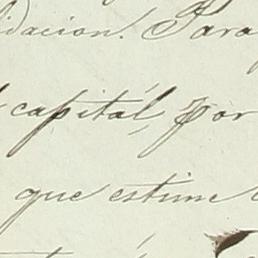 idacion. Para
capital, por
que estime